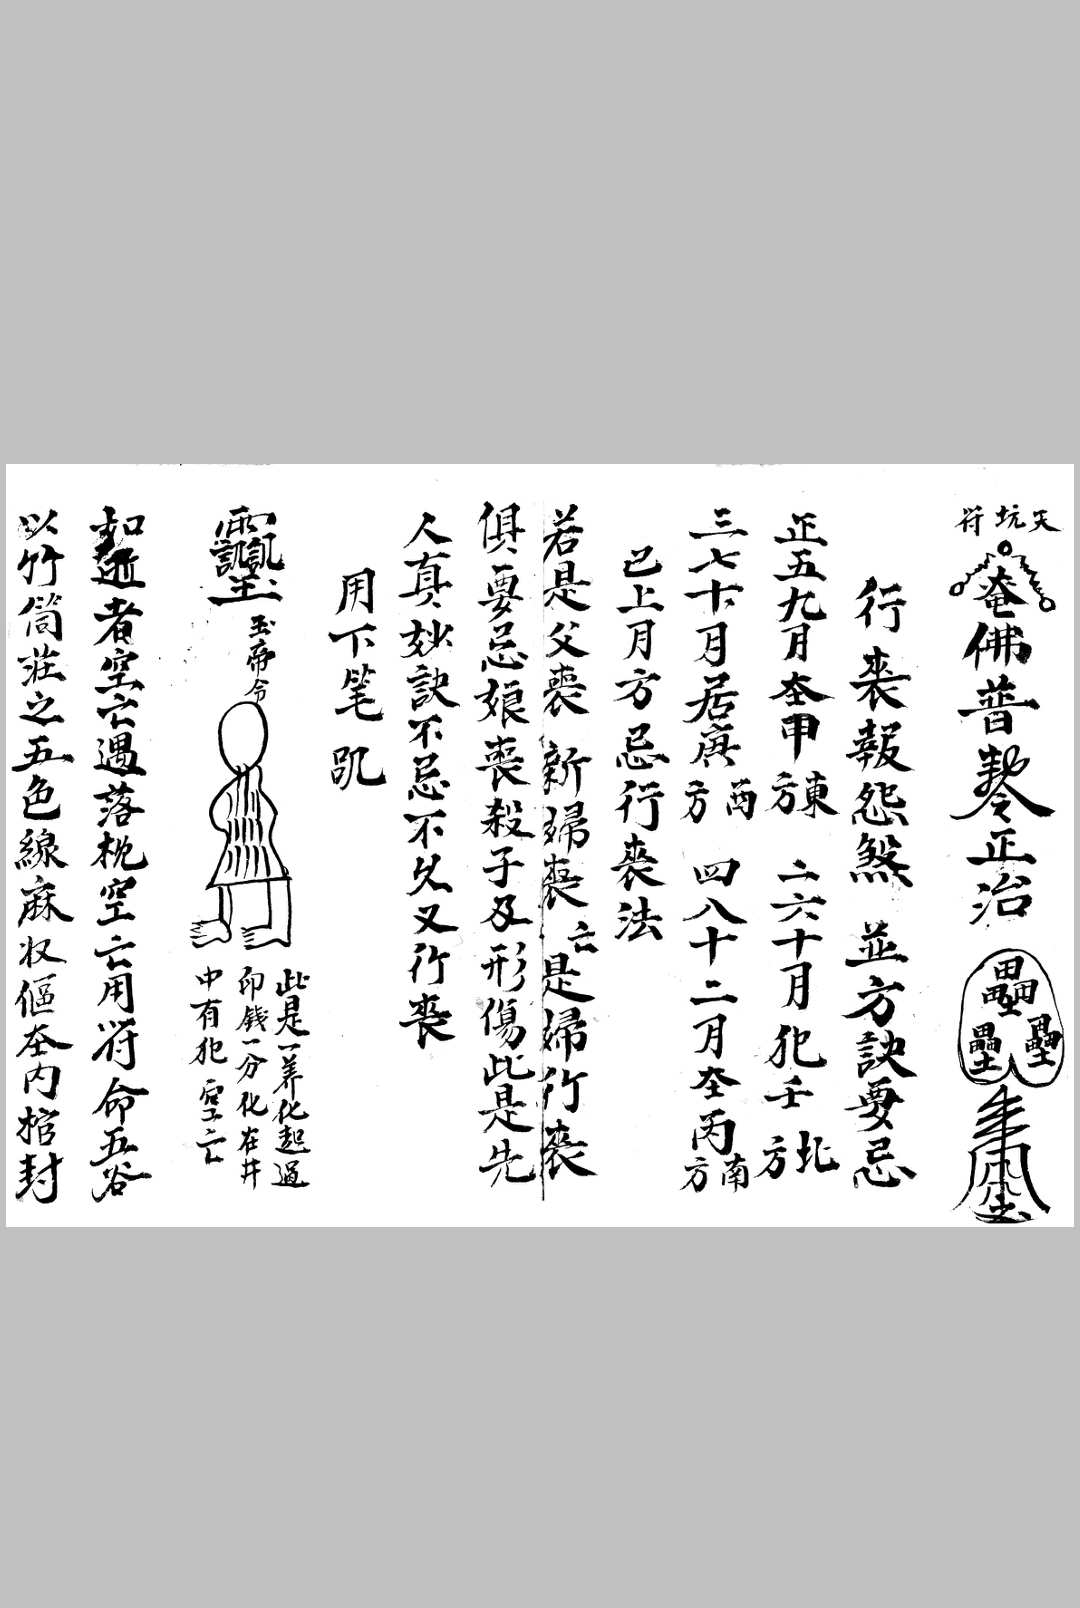 天坑符
奄佛普
正治
行喪報怨煞 並方訣要忌
正五九月在甲東方 二六十月犯壬北方
三七十月居庚酉方 四八十二月在丙南方
已上月方忌行喪法
若是父喪 新婦喪 亡是婦行喪
俱要忌娘喪殺子及形傷此是先
人真妙訣不忌不久又行喪
用下笔
玉帝令
此是一养化起過
印錢一分化在井
中有犯空亡
如逝者空亡遇落枕空亡用符命五谷
以竹筒莊之五色線麻収傴在内棺封